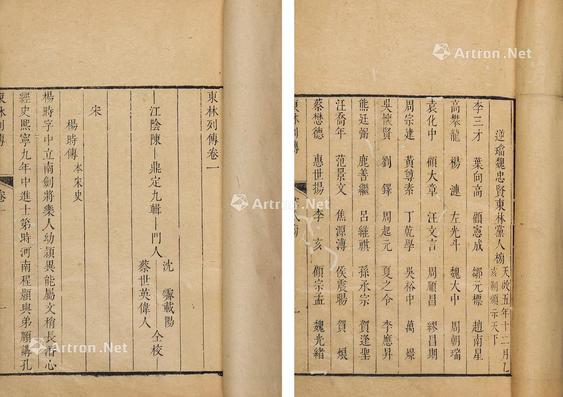 東林列傳卷一
江陰陳鼎定九輯 門人
沈霽載陽
蔡世英偉人
仝校
宋
楊時傳 本宋史
楊時字中立南劍將樂人幼穎異能屬文稍長潛心
經史熙寧九年中進士第時河南程顥與弟頤講孔
東林列傳 卷一
逆璫魏忠賢東林黨人榜 天啟五年十二月乙
亥制頒示天下
李三才 葉向高 顧憲成 鄒元標 趙南星
高攀龍 楊漣 左光斗 魏大中 周朝瑞
袁化中 顧大章 汪文言 周順昌 繆昌期
周宗建 黃尊素 丁乾學 吳裕中 萬燝
吳懷賢 劉鐸 周起元 夏之令 李應昇
熊廷弼 鹿善繼 呂維祺 孫承宗 賀逢聖
汪喬年 范景文 焦源溥 侯震暘 賀烺
蔡懋德 惠世揚 李亥 顧宗孟 魏光緒
東林列傳
Artron.Net
Artron.Net
Artron.Net
Artron.Net